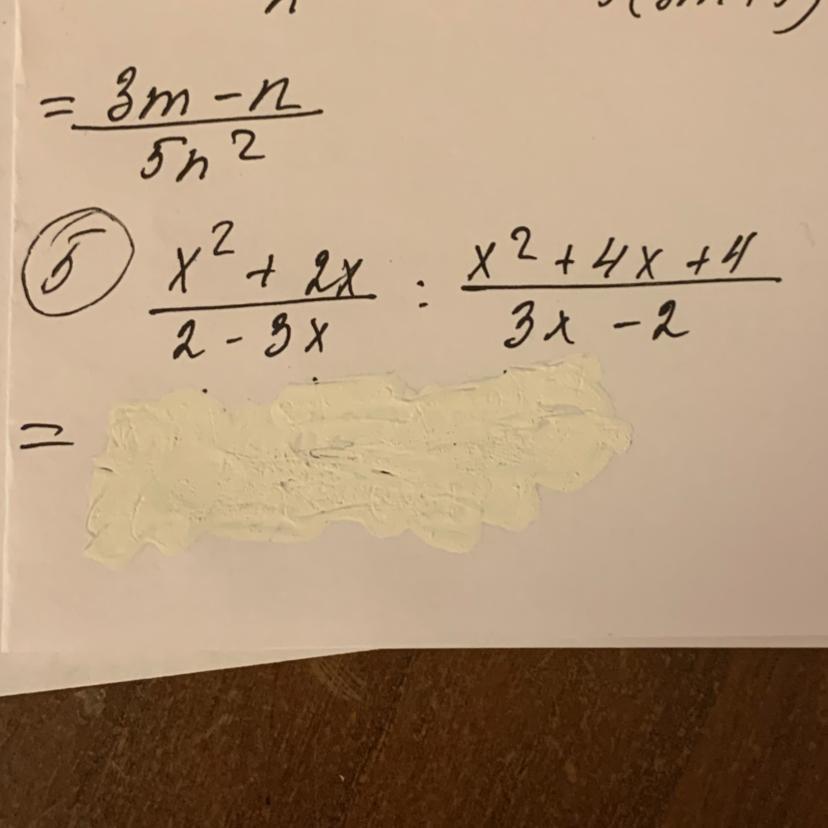 = (3m - n) / (5n²)
⑤ (x² + 2x) / (2 - 3x) : (x² + 4x + 4) / (3x - 2)
=